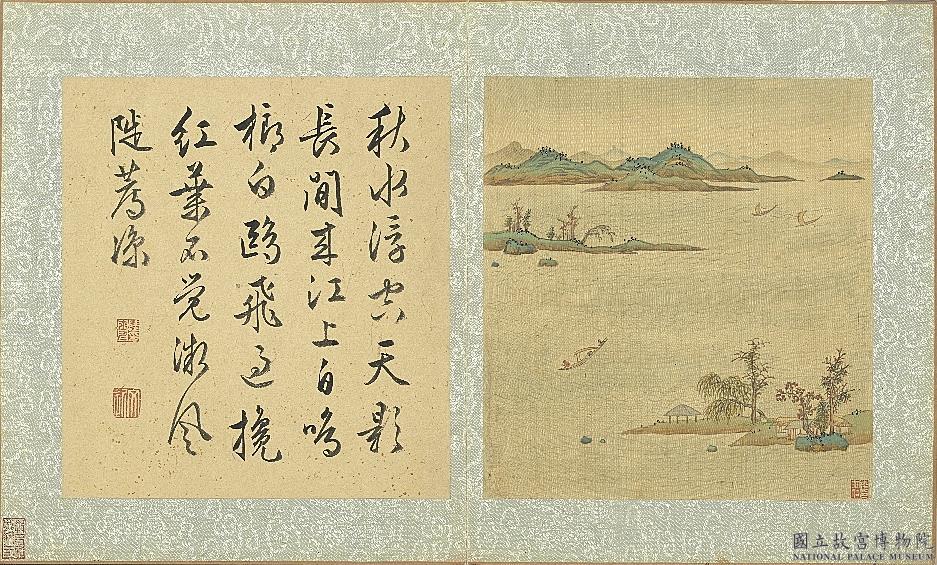 秋水浮空天影
長閒來江上自鳴
榔白鷗飛過攙
紅葉不覺微風
陡薦涼
國立故宮博物院
NATIONAL PALACE MUSEUM